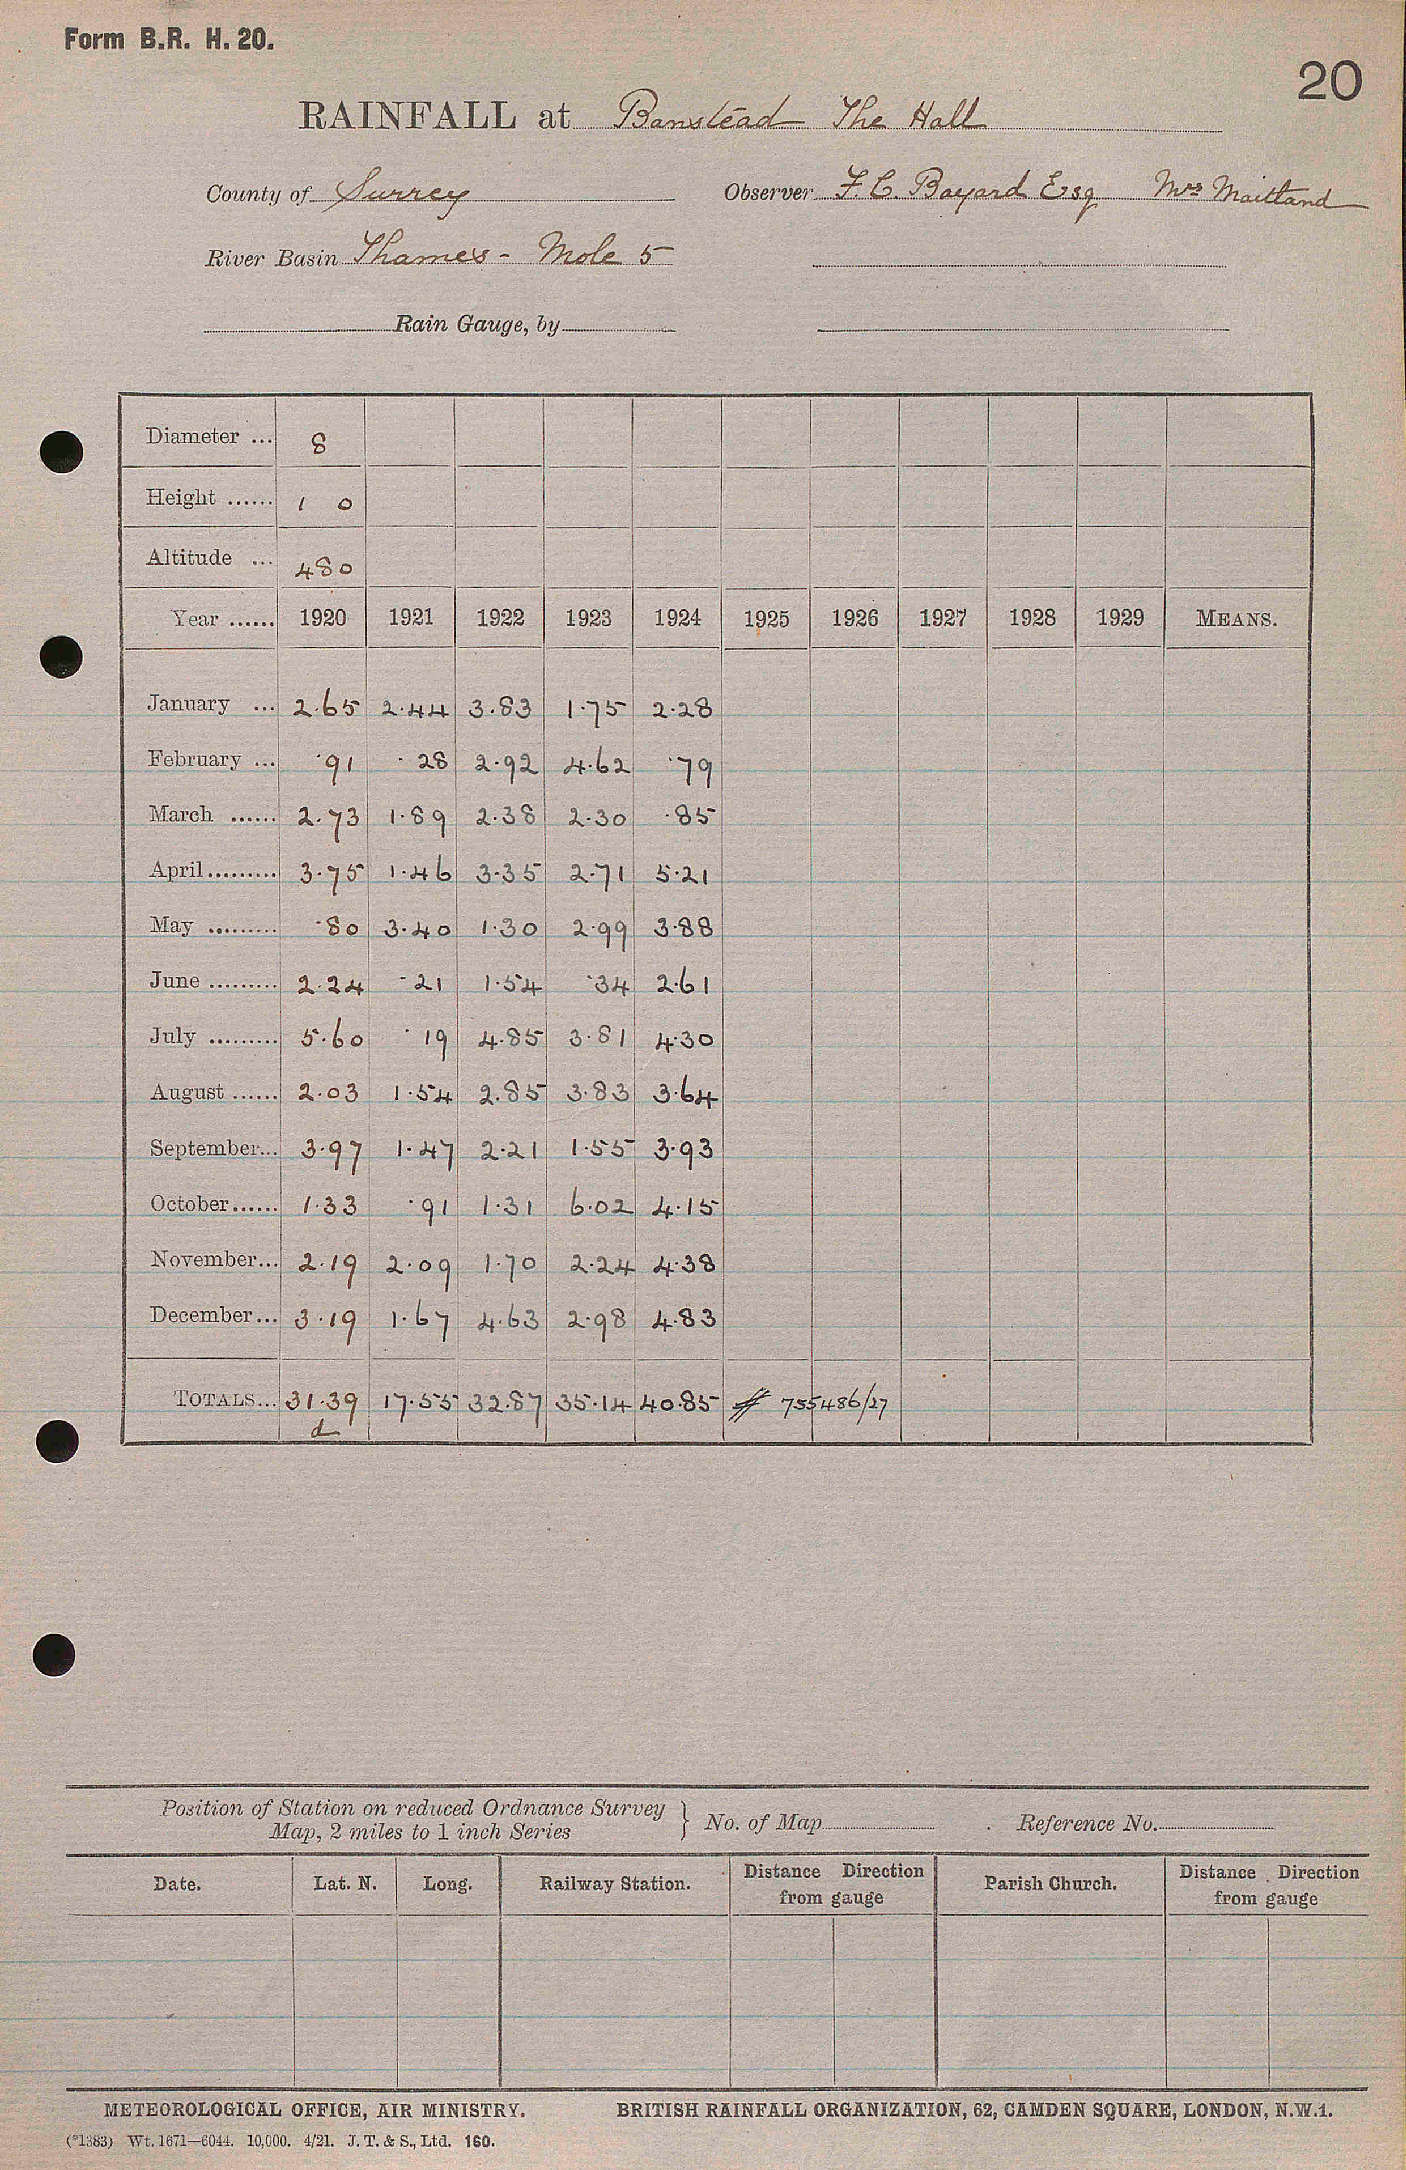 Form B.R. H. 20.
20
RAINFALL at Banstead The Hall
County of Surrey Observer F. C. Bayard Esq Mrs Maitland
River Basin Thames - Mole 5
Rain Gauge, by
Diameter ... 8
Height ...... 1 0
Altitude ... 480
Year ...... 1920 1921 1922 1923 1924 1925 1926 1927 1928 1929 MEANS.
January ... 2.65 2.44 3.83 1.75 2.28
February ... .91 .28 2.92 4.62 .79
March ...... 2.73 1.89 2.38 2.30 .85
April......... 3.75 1.46 3.35 2.71 5.21
May ......... .80 3.40 1.30 2.99 3.88
June ......... 2.24 .21 1.54 .34 2.61
July ......... 5.60 .19 4.85 3.81 4.30
August ...... 2.03 1.54 2.85 3.83 3.64
September... 3.97 1.47 2.21 1.55 3.93
October...... 1.33 .91 1.31 6.02 4.15
November... 2.19 2.09 1.70 2.24 4.38
December... 3.19 1.67 4.63 2.98 4.83
TOTALS... 31.39 17.55 32.87 35.14 40.85 755486/27
d
Position of Station on reduced Ordnance Survey
Map, 2 miles to 1 inch Series } No. of Map Reference No.
Date. Lat. N. Long. Railway Station. Distance Direction from gauge Parish Church. Distance Direction from gauge
METEOROLOGICAL OFFICE, AIR MINISTRY. BRITISH RAINFALL ORGANIZATION, 62, CAMDEN SQUARE, LONDON, N.W.1.
(*1383) Wt. 1671—6044. 10,000. 4/21. J. T. & S., Ltd. 160.